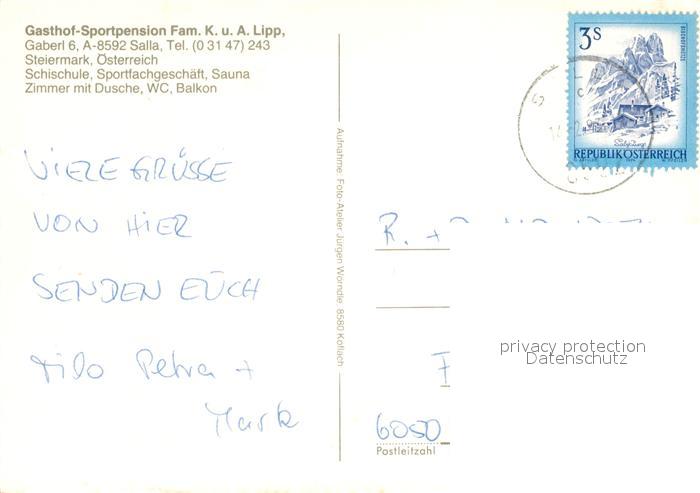 Gasthof-Sportpension Fam. K. u. A. Lipp,
Gaberl 6, A-8592 Salla, Tel. (0 31 47) 243
Steiermark, Österreich
Schischule, Sportfachgeschäft, Sauna
Zimmer mit Dusche, WC, Balkon
VIELE GRÜSSE
VON HIER
SENDEN EUCH
Tilo Petra +
Mark
Aufnahme: Foto-Atelier Jürgen Wörndle, 8580 Köflach
3S
BISCHOFSMÜTZE
Salzburg
REPUBLIK ÖSTERREICH
R. +
privacy protection
Datenschutz
6050
Postleitzahl